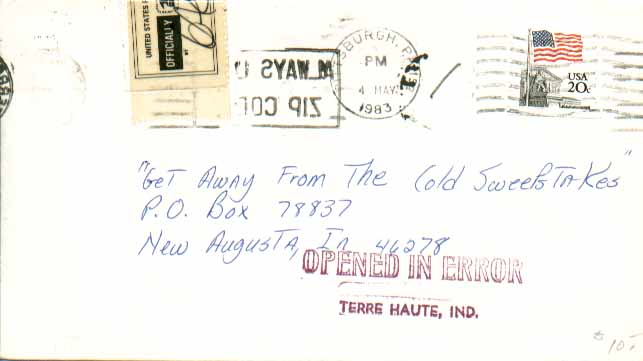 UNITED STATES P
OFFICIALLY
BY
SBURGH, P
PM
4 MAY
1983
ALWAYS U
ZIP COD
USA
20c
"Get Away From The Cold Sweepstakes"
P.O. Box 78837
New Augusta, In 46278
OPENED IN ERROR
TERRE HAUTE, IND.
$10-